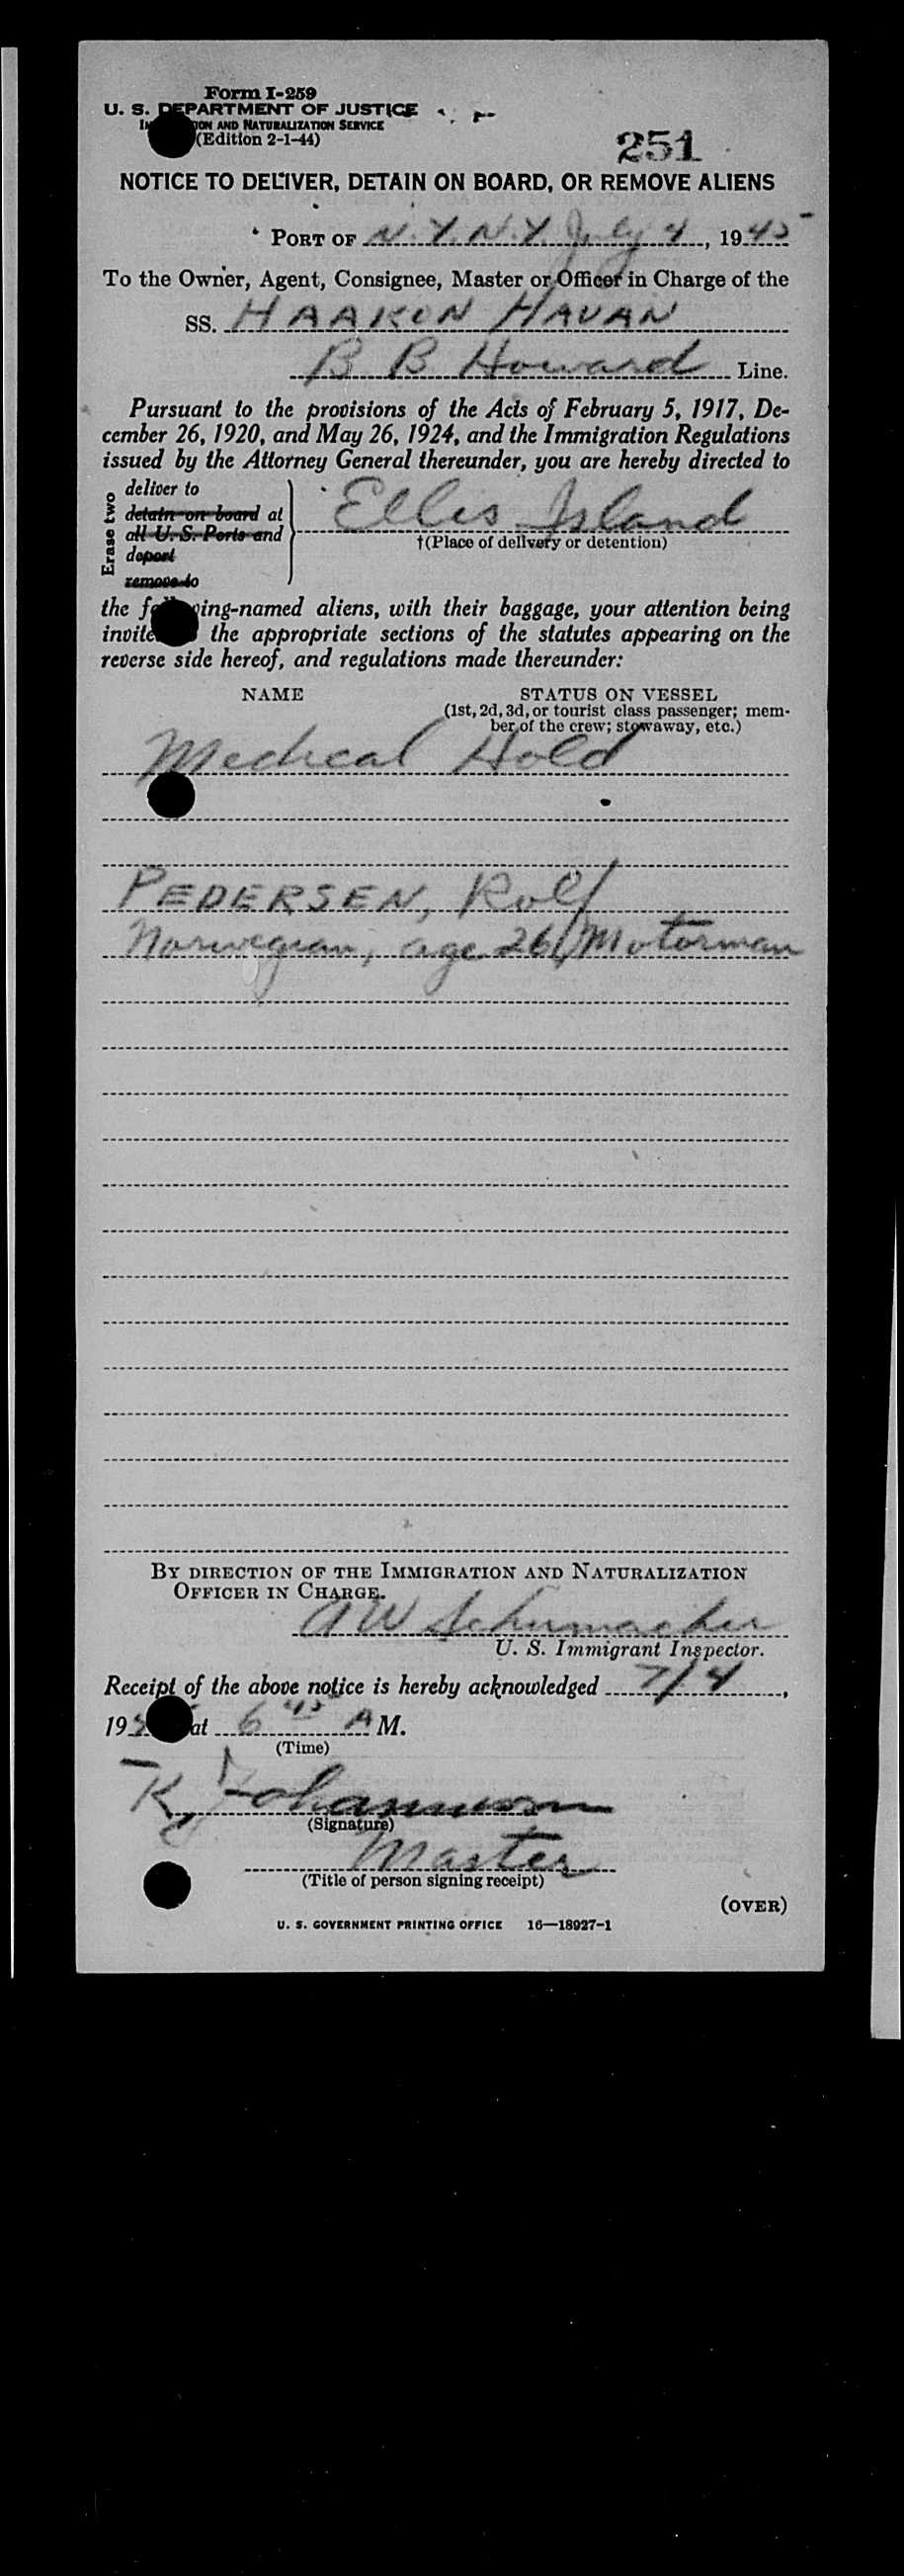 Form I-259
U. S. DEPARTMENT OF JUSTICE
AND NATURALIZATION SERVICE
(Edition 2-1-44)
251
NOTICE TO DELIVER, DETAIN ON BOARD, OR REMOVE ALIENS
PORT OF N.Y. N.Y. July 4, 1945
To the Owner, Agent, Consignee, Master or Officer in Charge of the
SS. HAAKON HAUAN
B B Howard Line.
Pursuant to the provisions of the Acts of February 5, 1917, De-
cember 26, 1920, and May 26, 1924, and the Immigration Regulations
issued by the Attorney General thereunder, you are hereby directed to
Erase two
deliver to
detain on board at
all U. S. Ports and
deport
remove to
Ellis Island
†(Place of delivery or detention)
the following-named aliens, with their baggage, your attention being
invited the appropriate sections of the statutes appearing on the
reverse side hereof, and regulations made thereunder:
NAME STATUS ON VESSEL
(1st, 2d, 3d, or tourist class passenger; mem-
ber of the crew; stowaway, etc.)
Medical Hold
PEDERSEN, Rolf
Norwegian, age 26 / Motorman
BY DIRECTION OF THE IMMIGRATION AND NATURALIZATION
OFFICER IN CHARGE.
A W Schumacher
U. S. Immigrant Inspector.
Receipt of the above notice is hereby acknowledged 7/4,
19 at 6 45 A M.
(Time)
K, Johannesen
(Signature)
Master
(Title of person signing receipt)
(OVER)
U. S. GOVERNMENT PRINTING OFFICE 16—18927-1